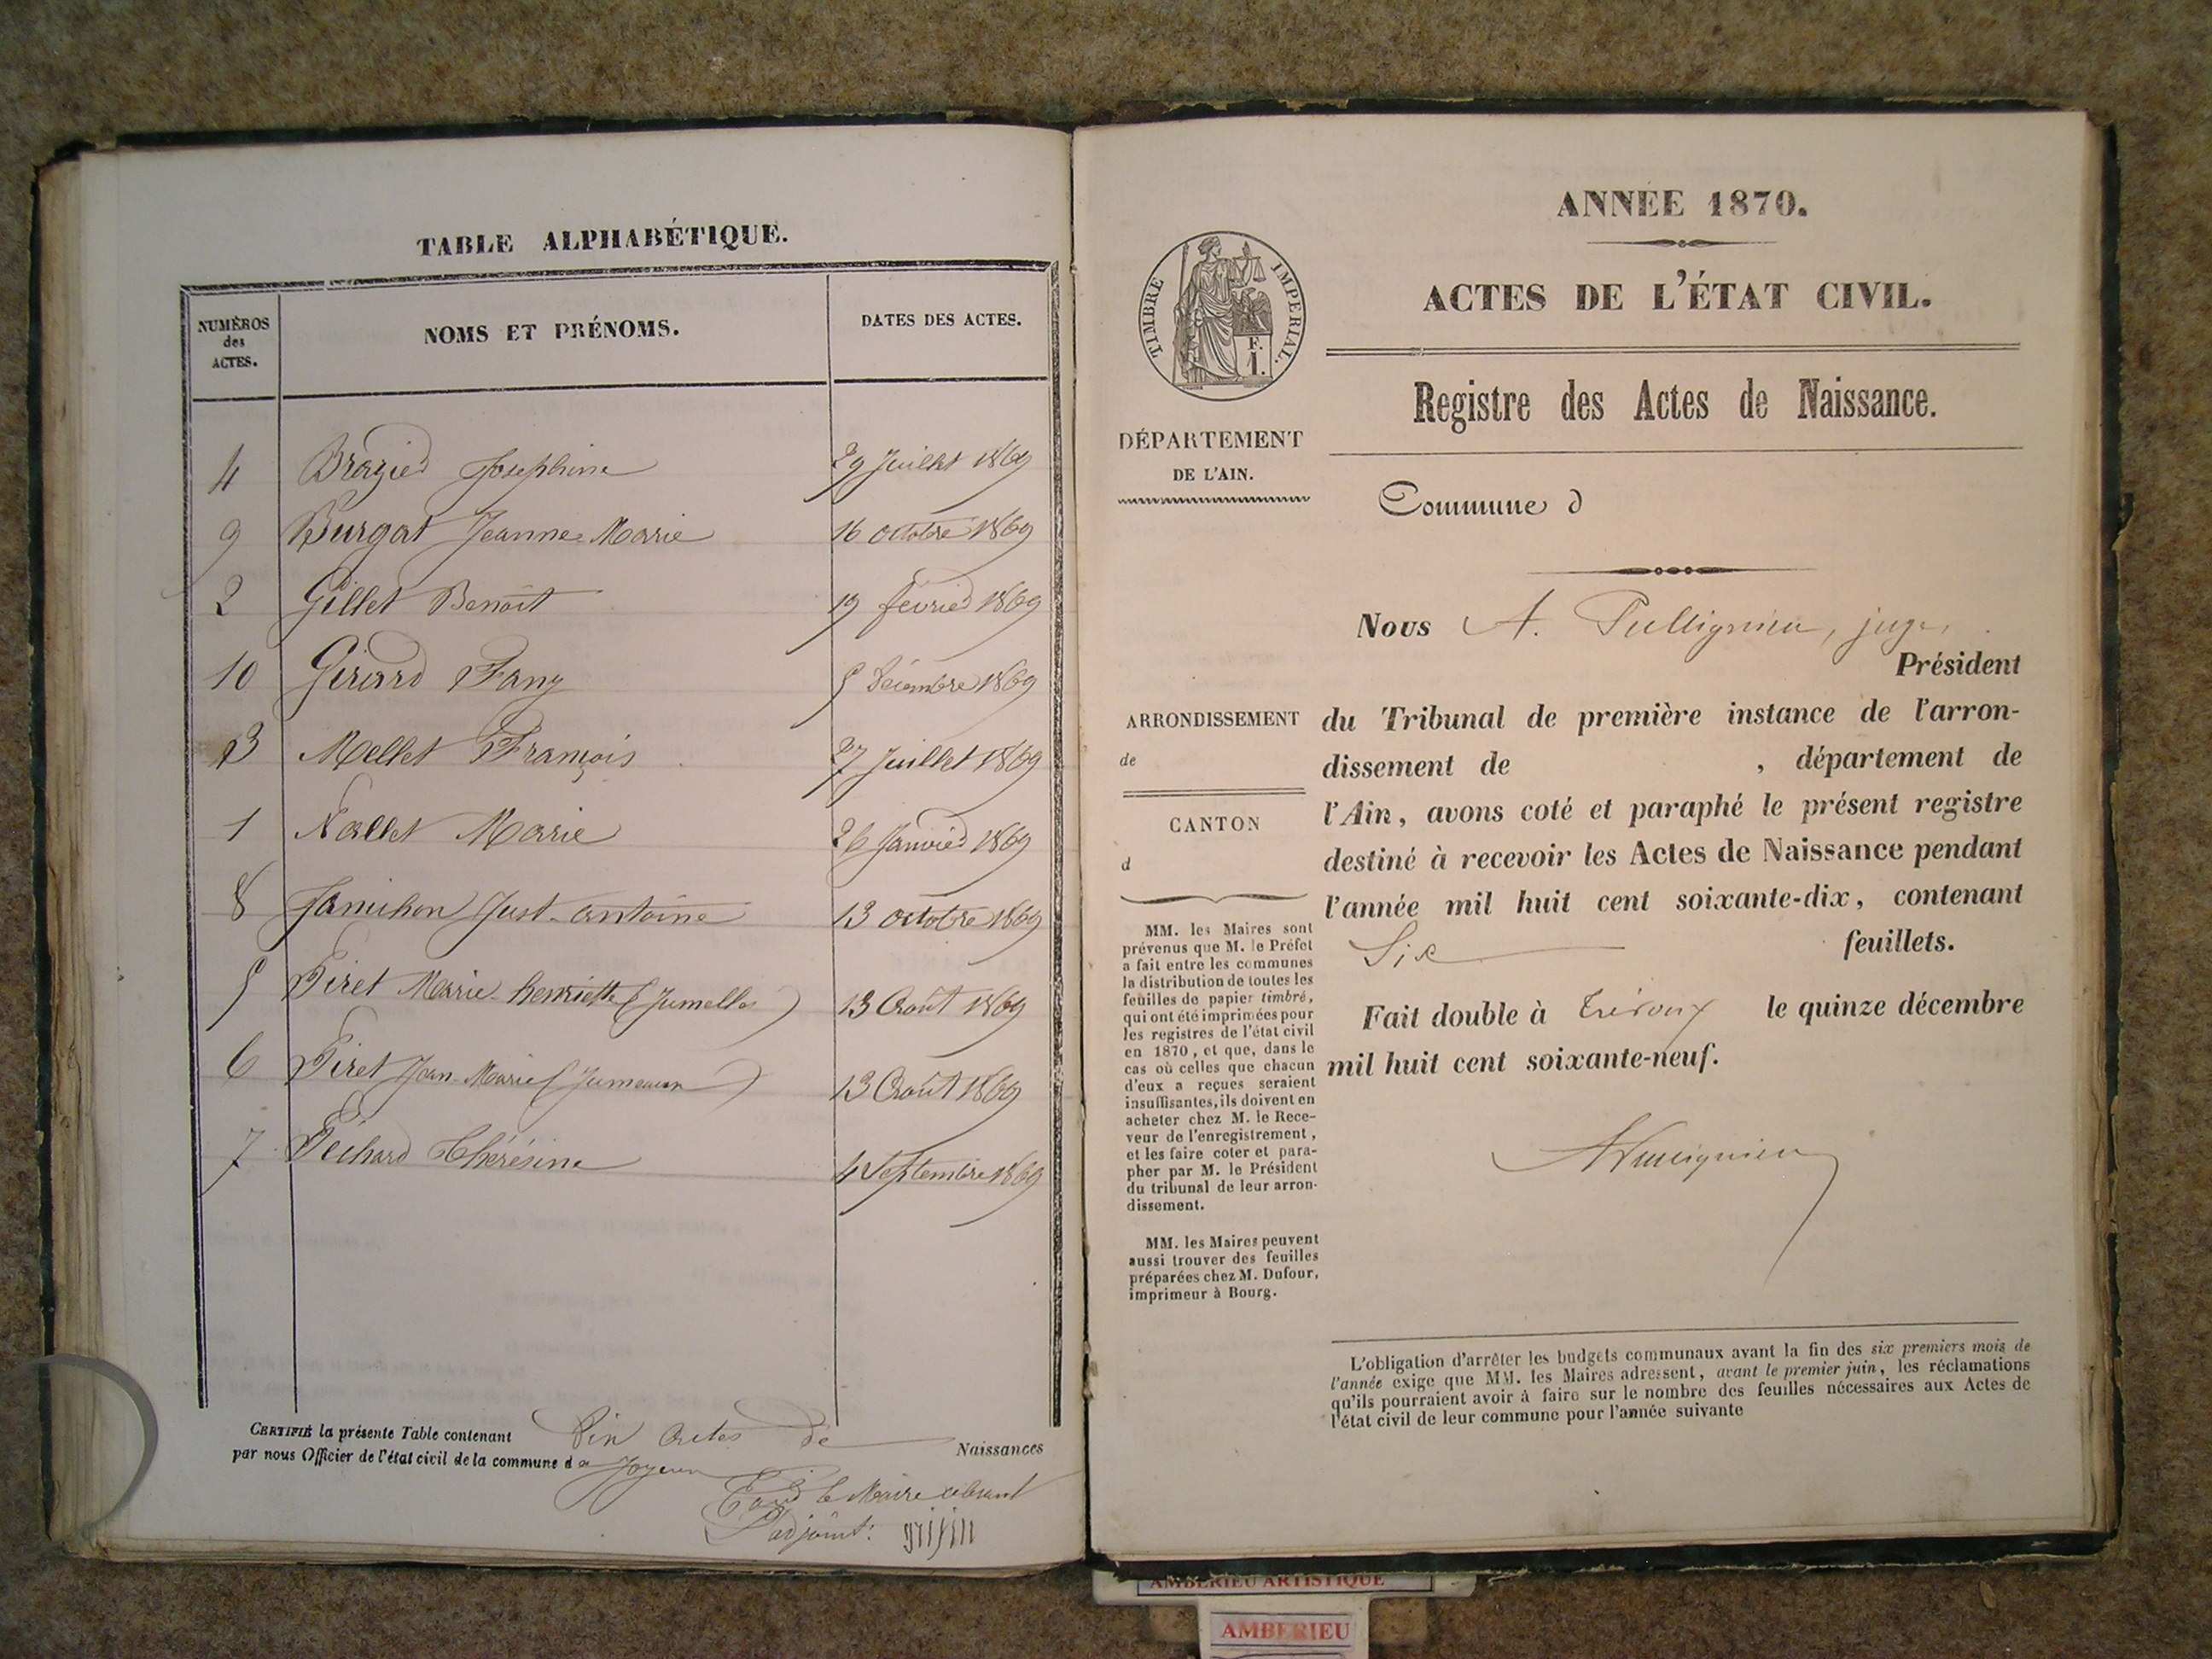 TABLE ALPHABÉTIQUE.
NUMÉROS
des
ACTES.
NOMS ET PRÉNOMS.
DATES DES ACTES.
4 Brazier Joséphine 29 Juillet 1869
9 Burgat Jeanne-Marie 16 octobre 1869
2 Gillet Benoît 19 février 1869
10 Girard Fany 5 Décembre 1869
3 Mellet François 27 Juillet 1869
1 Nallet Marie 26 Janvier 1869
8 Just-antoine 13 octobre 1869
5 Piret Marie-henriette (Jumelle) 13 Août 1869
6 Piret Jean-Marie (Jumeaux) 13 Août 1869
7 Péchard Thérésine 4 Septembre 1869
CERTIFIÉ la présente Table contenant Dix Actes de Naissances
par nous Officier de l'état civil de la commune de Joyeux
le Maire absent
L'adjoint:
ANNÉE 1870.
ACTES DE L'ÉTAT CIVIL.
TIMBRE IMPERIAL.
F.
1.
Registre des Actes de Naissance.
DÉPARTEMENT
DE L'AIN.
Commune d
Nous A. Pullignieu, juge,
Président
ARRONDISSEMENT
de
CANTON
d
du Tribunal de première instance de l'arron-
dissement de , département de
l'Ain, avons coté et paraphé le présent registre
destiné à recevoir les Actes de Naissance pendant
l'année mil huit cent soixante-dix, contenant
Six feuillets.
Fait double à Trévoux le quinze décembre
mil huit cent soixante-neuf.
MM. les Maires sont
prévenus que M. le Préfet
a fait entre les communes
la distribution de toutes les
feuilles de papier timbré,
qui ont été imprimées pour
les registres de l'état civil
en 1870, et que, dans le
cas où celles que chacun
d'eux a reçues seraient
insuffisantes, ils doivent en
acheter chez M. le Rece-
veur de l'enregistrement,
et les faire coter et para-
pher par M. le Président
du tribunal de leur arron-
dissement.
MM. les Maires peuvent
aussi trouver des feuilles
préparées chez M. Dufour,
imprimeur à Bourg.
L'obligation d'arrêter les budgets communaux avant la fin des six premiers mois de
l'année exige que MM. les Maires adressent, avant le premier juin, les réclamations
qu'ils pourraient avoir à faire sur le nombre des feuilles nécessaires aux Actes de
l'état civil de leur commune pour l'année suivante
AMBERIEU ARTISTIQUE
AMBERIEU